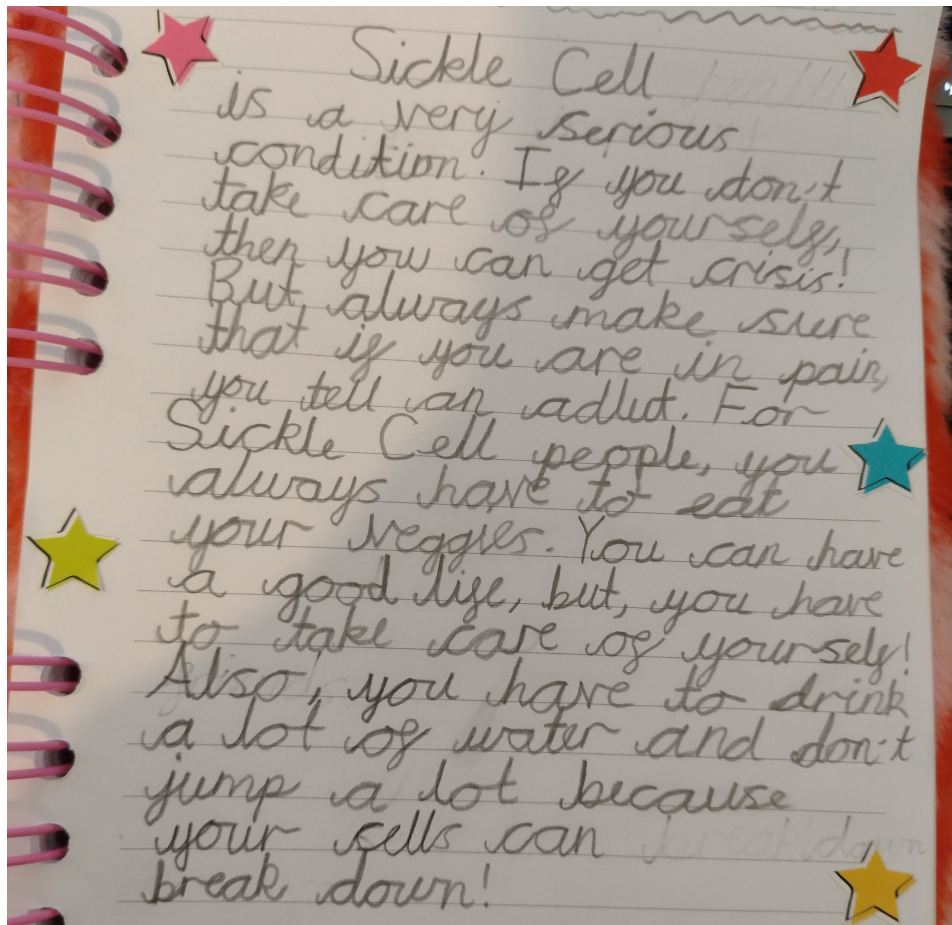 Sickle Cell
is a very serious
condition. If you don't
take care of yourself,
then you can get crisis!
But always make sure
that if you are in pain,
you tell an adlut. For
Sickle Cell people, you
always have to eat
your veggies. You can have
a good life, but, you have
to take care of yourself!
Also, you have to drink
a lot of water and don't
jump a lot because
your cells can
break down!